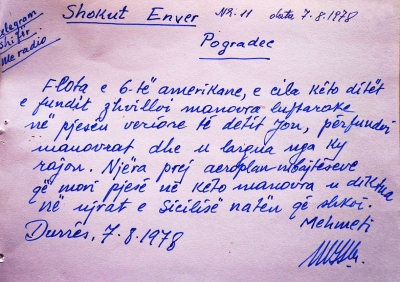 Shokut Enver Nr. 11 data 7.8.1978
Telegram
me radio
Pogradec
Flota e 6-të amerikane, e cila këto ditët
e fundit zhvilloi manovra luftarake
në pjesën veriore të detit Jon, përfundoi
manovrat dhe u largua nga ky
rajon. Njëra prej aeroplan-mbajtëseve
që mori pjesë në këto manovra u diktua
në ujrat e Sicilisë natën që shkoi.
Mehmeti
Durrës, 7.8.1978